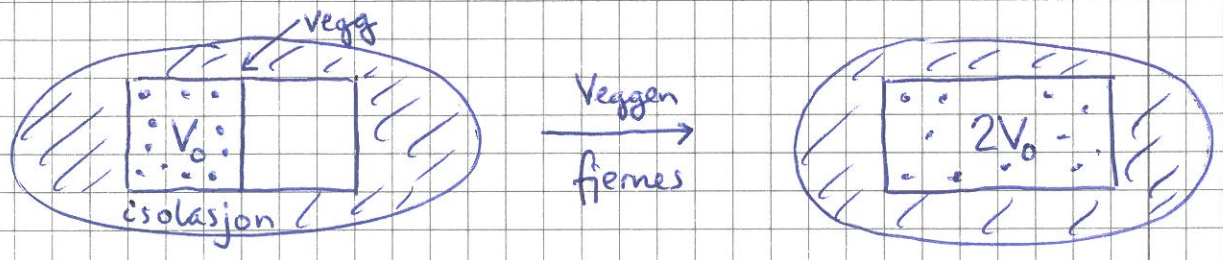 vegg
V₀
isolasjon
Veggen
fjernes
2V₀